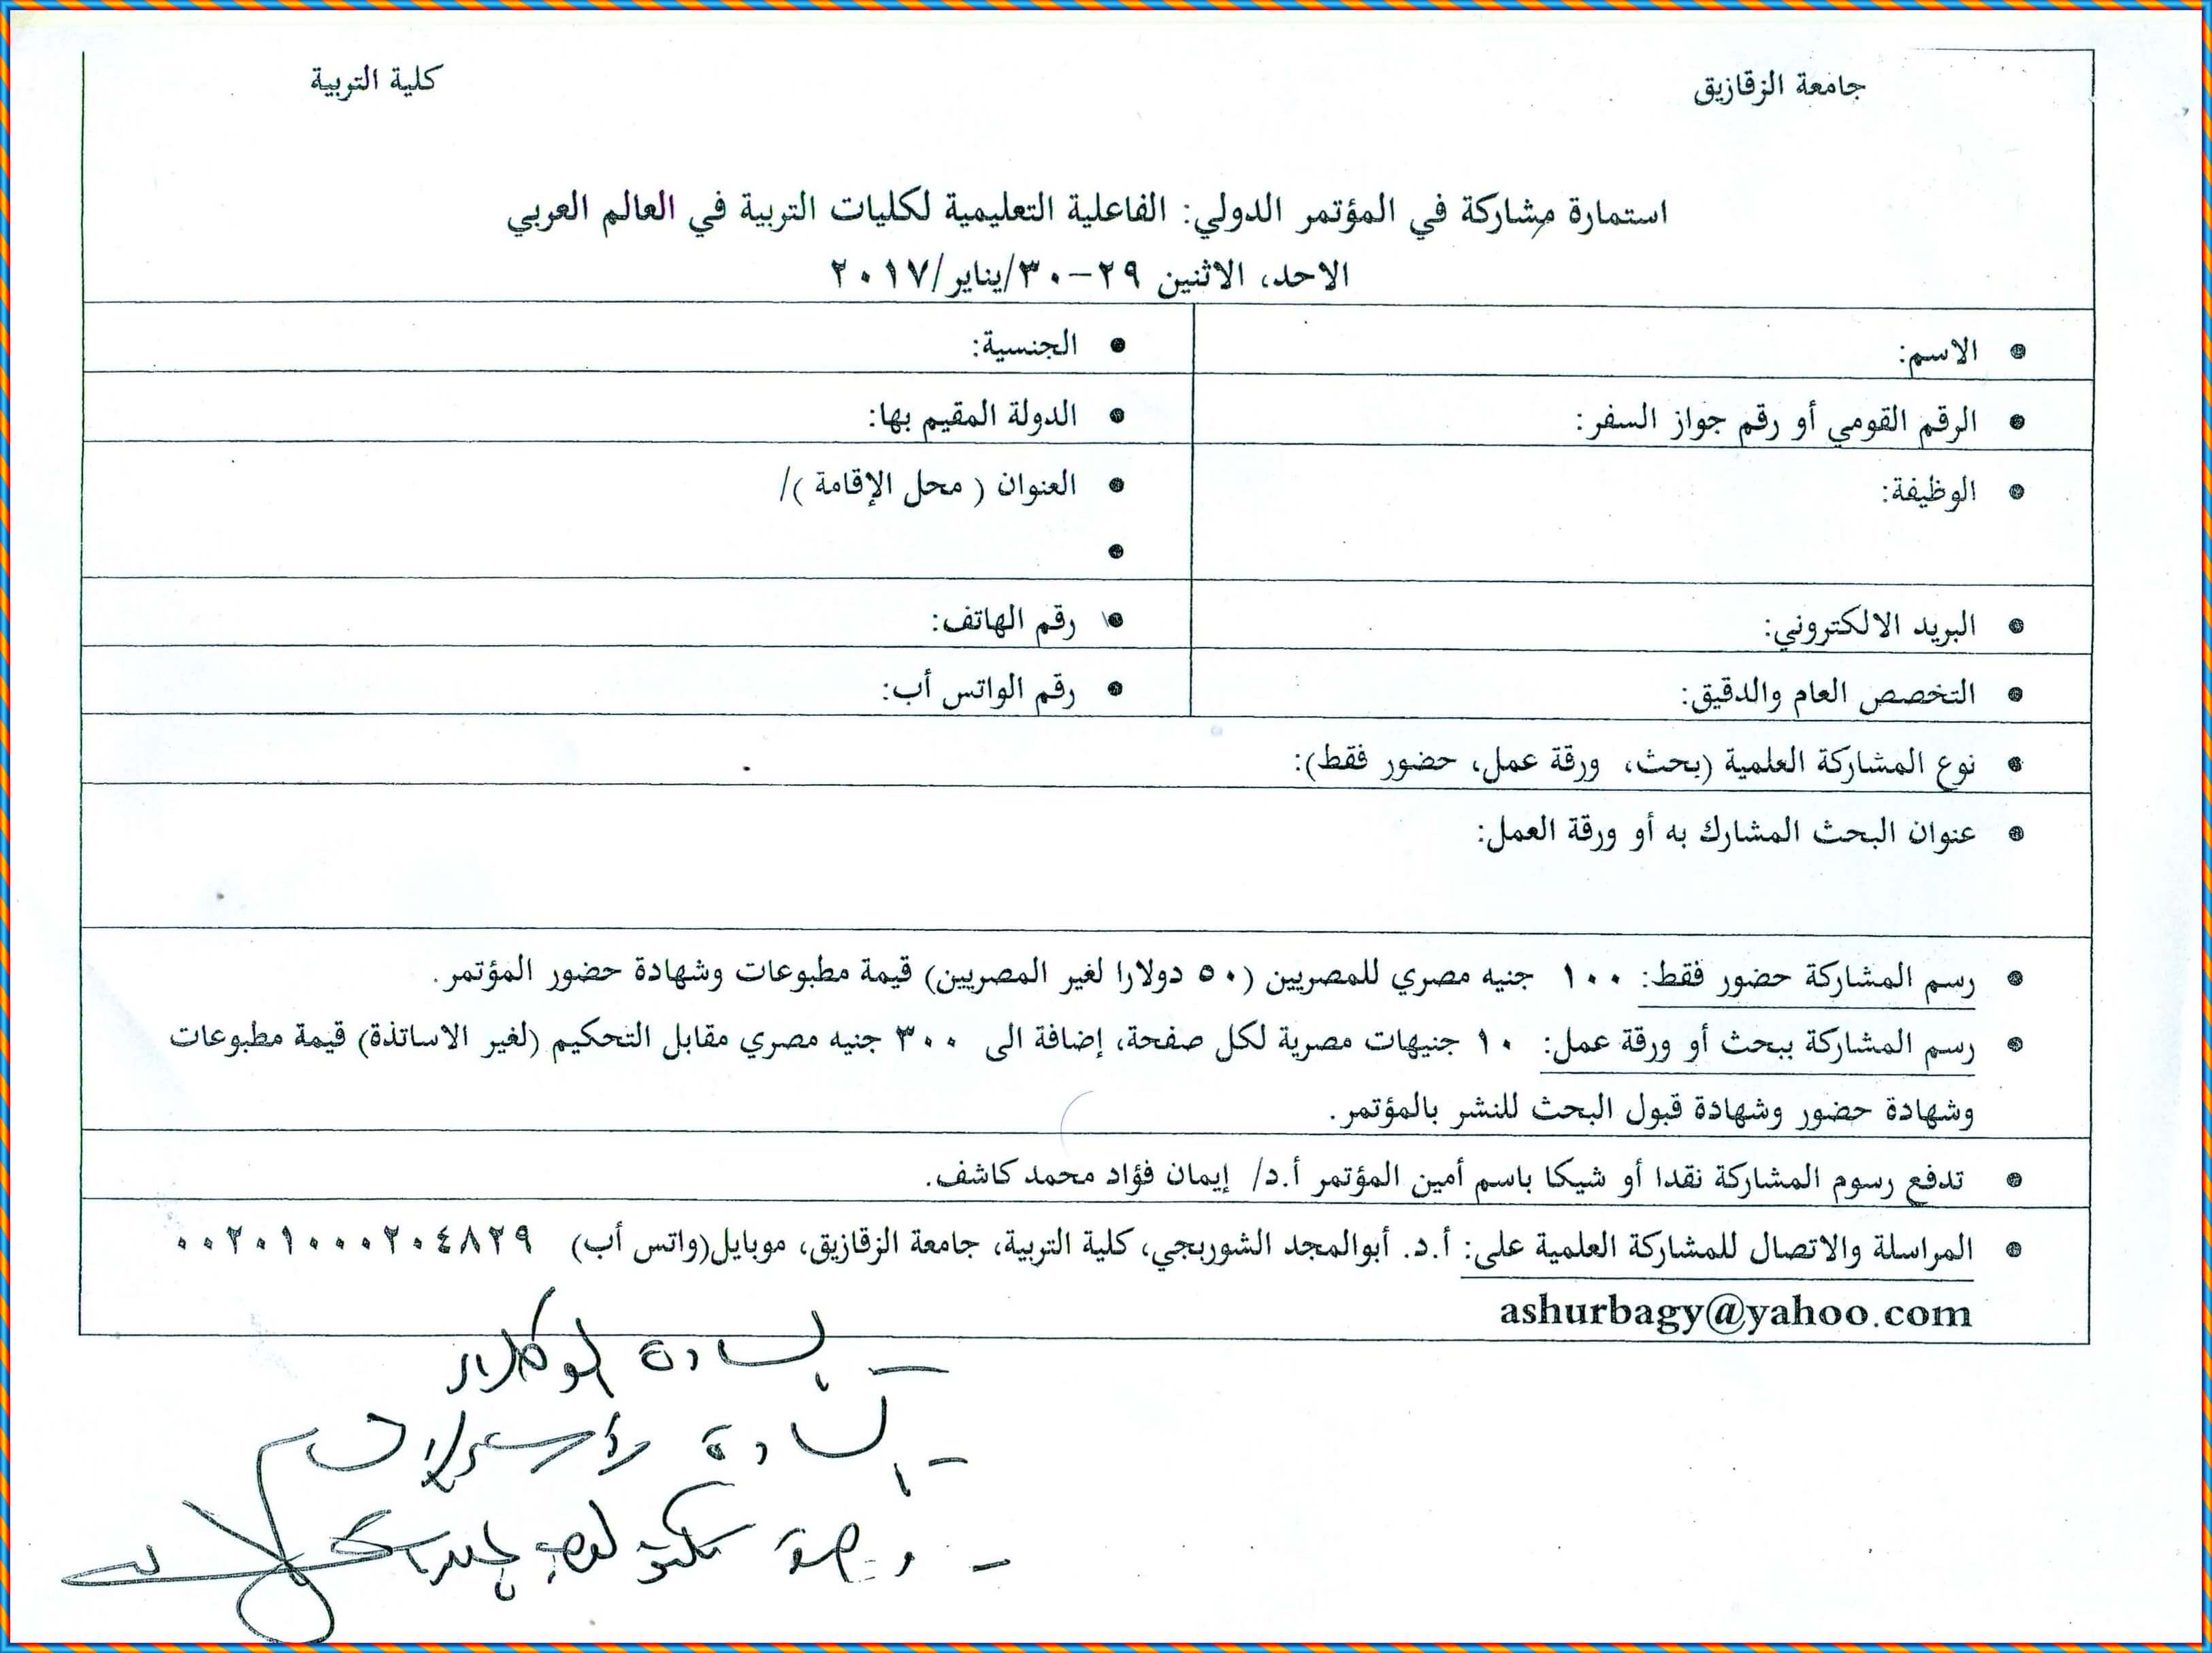 جامعة الزقازيق
كلية التربية
استمارة مشاركة في المؤتمر الدولي: الفاعلية التعليمية لكليات التربية في العالم العربي
الاحد، الاثنين ٢٩-٣٠/يناير/٢٠١٧
• الاسم:
• الجنسية:
• الرقم القومي أو رقم جواز السفر:
• الدولة المقيم بها:
• الوظيفة:
• العنوان ( محل الإقامة )/
•
• البريد الالكتروني:
• رقم الهاتف:
• التخصص العام والدقيق:
• رقم الواتس أب:
• نوع المشاركة العلمية (بحث، ورقة عمل، حضور فقط):
• عنوان البحث المشارك به أو ورقة العمل:
• رسم المشاركة حضور فقط: ١٠٠ جنيه مصري للمصريين (٥٠ دولارا لغير المصريين) قيمة مطبوعات وشهادة حضور المؤتمر.
• رسم المشاركة ببحث أو ورقة عمل: ١٠ جنيهات مصرية لكل صفحة، إضافة الى ٣٠٠ جنيه مصري مقابل التحكيم (لغير الاساتذة) قيمة مطبوعات
وشهادة حضور وشهادة قبول البحث للنشر بالمؤتمر.
• تدفع رسوم المشاركة نقدا أو شيكا باسم أمين المؤتمر أ.د/ إيمان فؤاد محمد كاشف.
• المراسلة والاتصال للمشاركة العلمية على: أ.د. أبوالمجد الشوربجي، كلية التربية، جامعة الزقازيق، موبايل(واتس أب) ٠٠٢٠١٠٠٠٢٠٤٨٢٩
ashurbagy@yahoo.com
السادة الوكلاء
- السادة